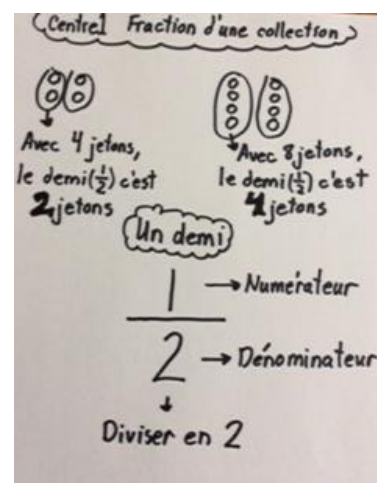 Centre 1 Fraction d'une collection
Avec 4 jetons,
le demi (1/2) c'est
2 jetons
Avec 8 jetons,
le demi (1/2) c'est
4 jetons
Un demi
1 → Numérateur
2 → Dénominateur
Diviser en 2